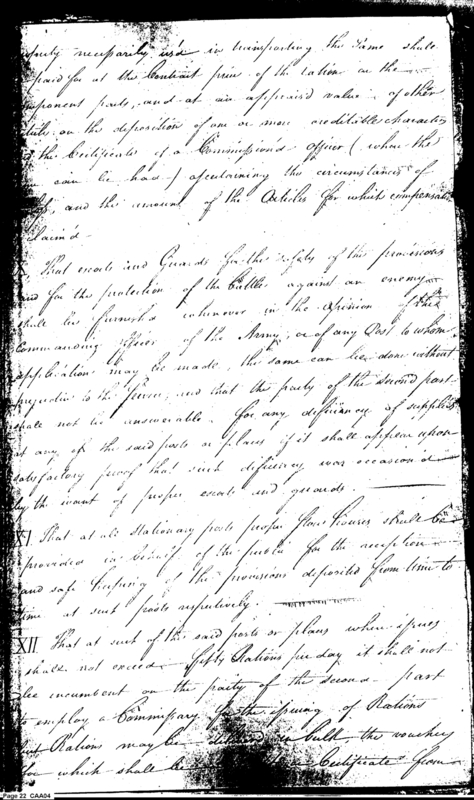 necessarily used in transporting the same shall
paid for at the Contract price of the ration or the
component parts, and at an appraised value of other
on the deposition of one or more creditable characters
the Certificate of a Commissioned Officer (when the
can be had) ascertaining the circumstances of
and the amount of the Articles for which compensation
claim'd
That escorts and Guards for the safety of the provisions
and for the protection of the Cattle against an enemy
shall be furnished whenever in the opinion of the
Commanding Officer of the Army, or of any Post to whom
application may be made, the same can be done without
prejudice to the Service, and that the party of the second part
shall not be answerable for any deficiency of supplies
at any of the said posts or places if it shall appear upon
satisfactory proof that such deficiency was occasion'd
by the want of proper escorts and guards.
XI That at all stationary posts proper Store houses shall be
provided in behalf of the public for the reception
and safe keeping of the provisions deposited from time to
time at such posts respectively.
XII That at such of the said posts or places where issues
shall not exceed fifty Rations per day it shall not
be incumbent on the party of the second part
to employ a Commissary for the issuing of Rations
but Rations may be in bulk the vouchers
for which shall be Certificate from
Page 22 CAA04